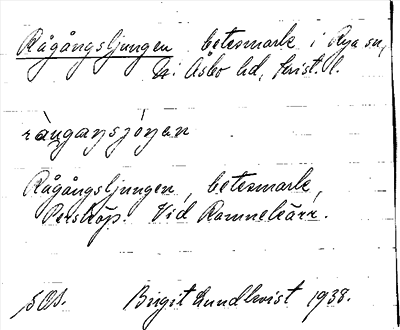 Rågångsljungen betesmark i Rya sn,
N. Åsbo hd, Krist. l.
ràŋgaŋsjöŋen
Rågångsljungen, betesmark,
Perstorp. Vid Ramnekärr.
Birgit Lundkvist 1938.